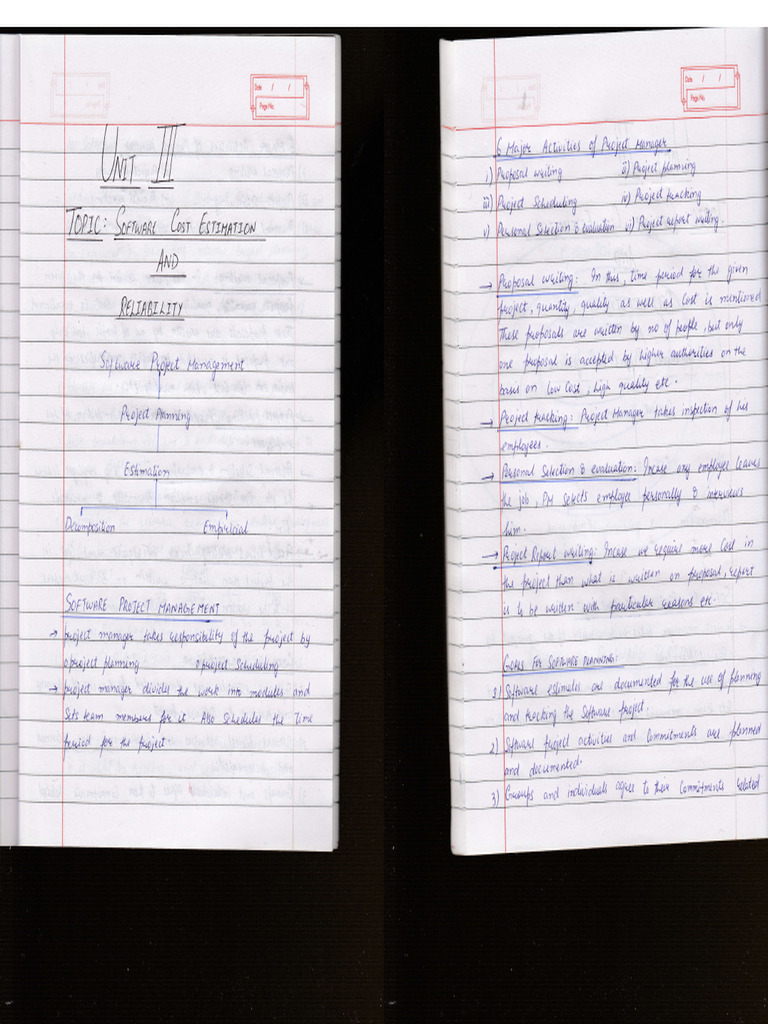 Date / /
Page No.
UNIT III
TOPIC: SOFTWARE COST ESTIMATION
AND
RELIABILITY
Software Project Management
Project Planning
Estimation
Decomposition Empirical
SOFTWARE PROJECT MANAGEMENT
→ project manager takes responsibility of the project by
o project planning o project Scheduling
→ project manager divides the work into modules and
Sets team members for it. Also Schedules the Time
period for the project
Date / /
Page No.
6 Major Activities of Project Manager
i) Proposal writing ii) Project planning
iii) Project Scheduling iv) Project tracking
v) Personal Selection & evaluation vi) Project report writing.
→ Proposal writing: In this, time period for the given
project, quantity, quality as well as Cost is mentioned
These proposals are written by no of people, but only
one proposal is accepted by higher authorities on the
basis on low Cost, high quality etc.
→ Project tracking: Project Manager takes inspection of his
employees.
→ Personal Selection & evaluation: Incase any employee leaves
the job, PM Selects employee personally & interviews
him.
→ Project Report writing: Incase we require more Cost in
the project than what is written on proposal, report
is to be written with particular reasons etc.
GOALS FOR SOFTWARE PLANNING:
1) Software estimates are documented for the use of planning
and tracking the Software project.
2) Software project activities and Commitments are planned
and documented.
3) Groups and individuals agree to their Commitments related